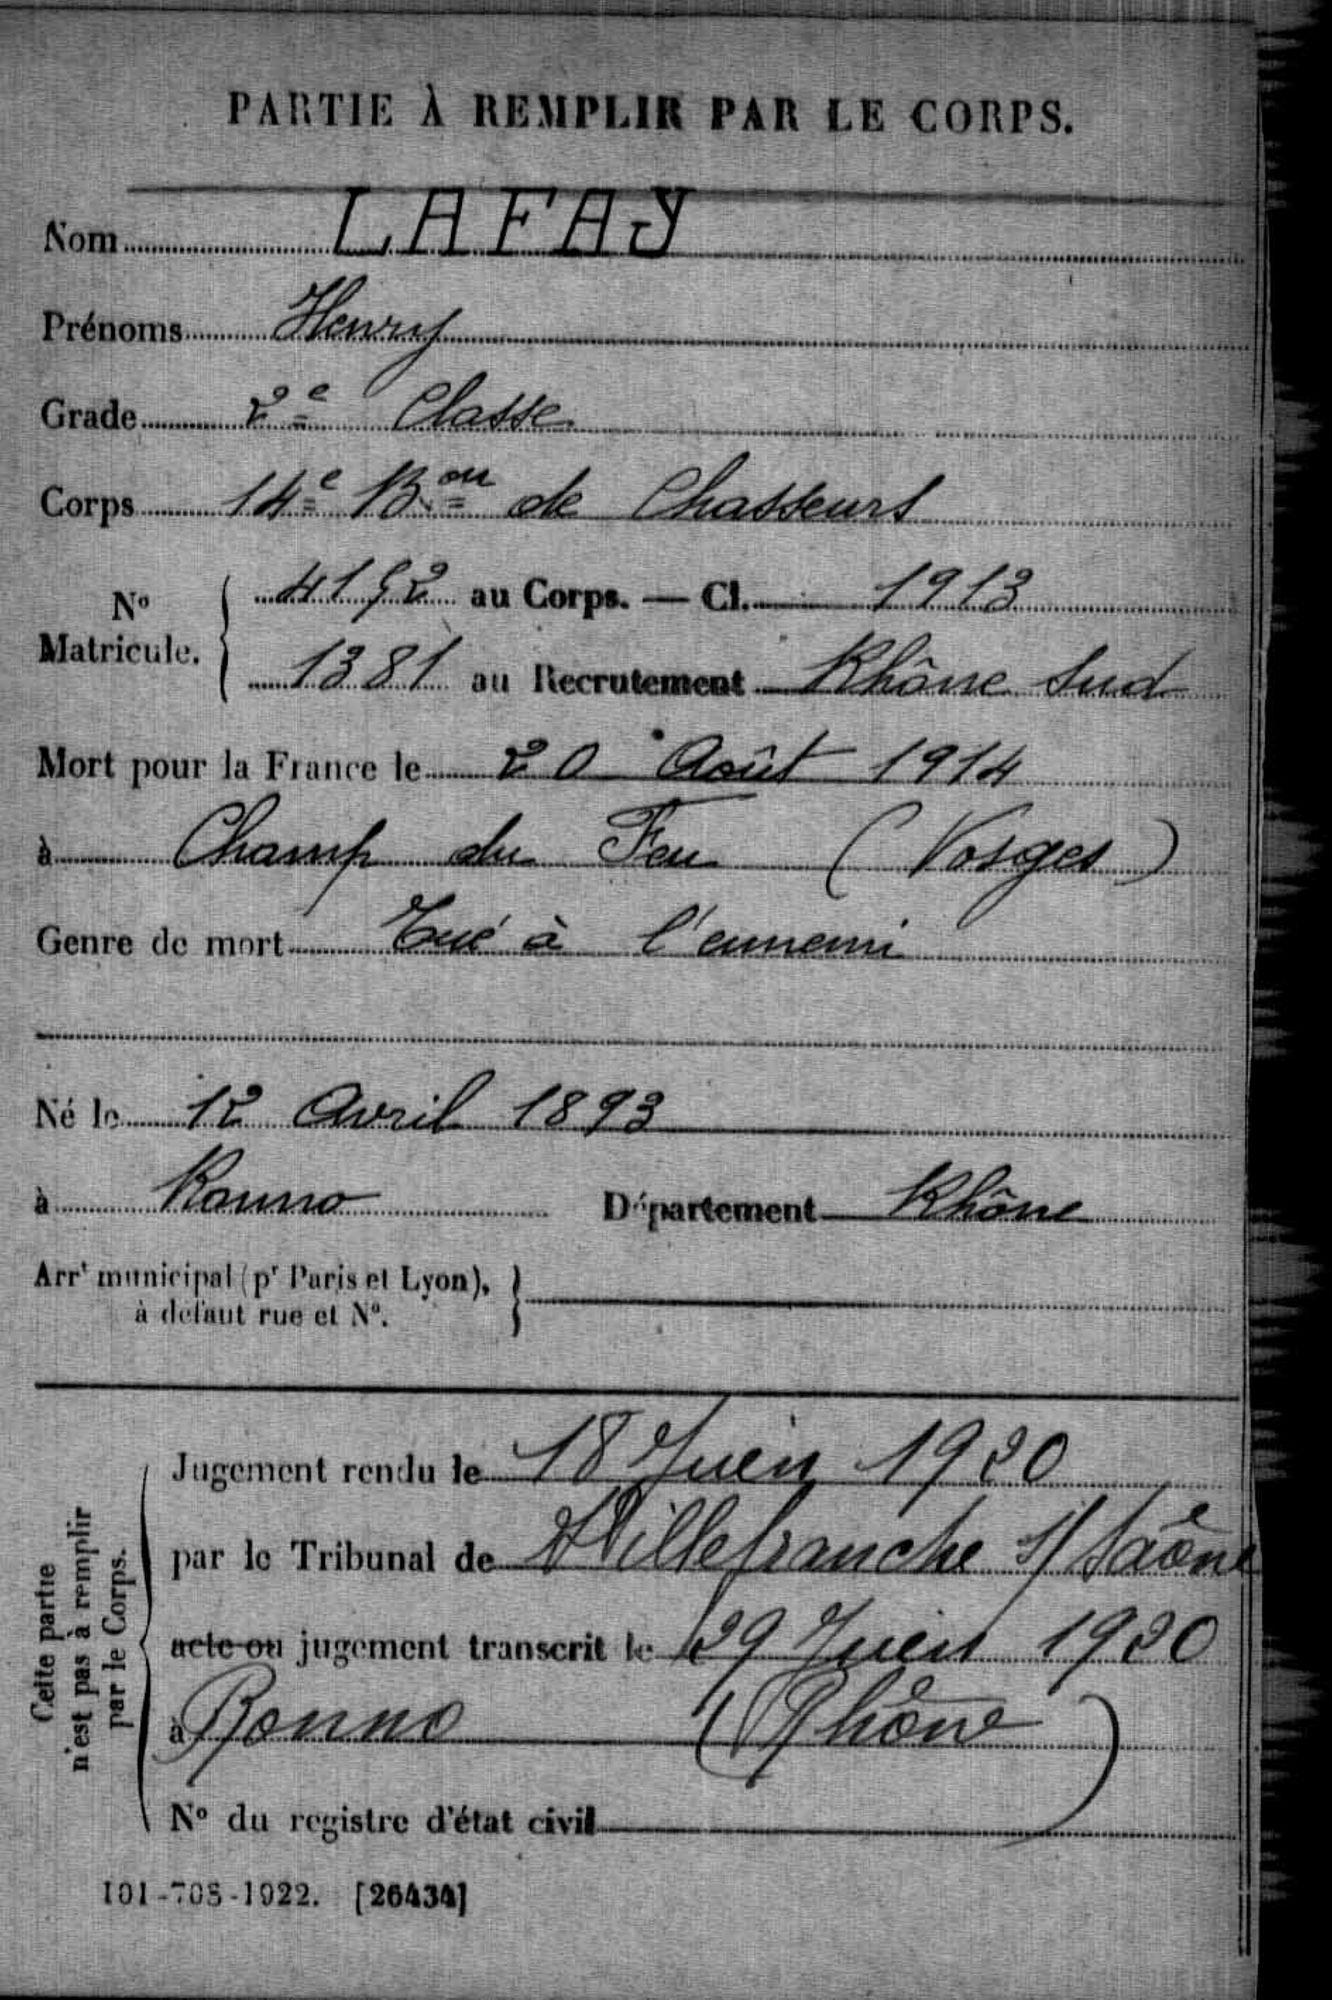 PARTIE À REMPLIR PAR LE CORPS.
Nom LAFAY
Prénoms Henry
Grade 2e Classe
Corps 14e Bon de Chasseurs
No Matricule. 4152 au Corps. — Cl. 1913
1381 au Recrutement Rhône Sud
Mort pour la France le 20 Août 1914
à Champ du Feu (Vosges)
Genre de mort Tué à l'ennemi
Né le 12 Avril 1893
à Ronno Département Rhône
Arrt municipal (pr Paris et Lyon),
à défaut rue et No.
Cette partie
n'est pas à remplir
par le Corps.
Jugement rendu le 18 Juin 1920
par le Tribunal de Villefranche s/ Saône
acte ou jugement transcrit le 29 Juin 1920
à Ronno (Rhône)
No du registre d'état civil
101-708-1922. [26434]